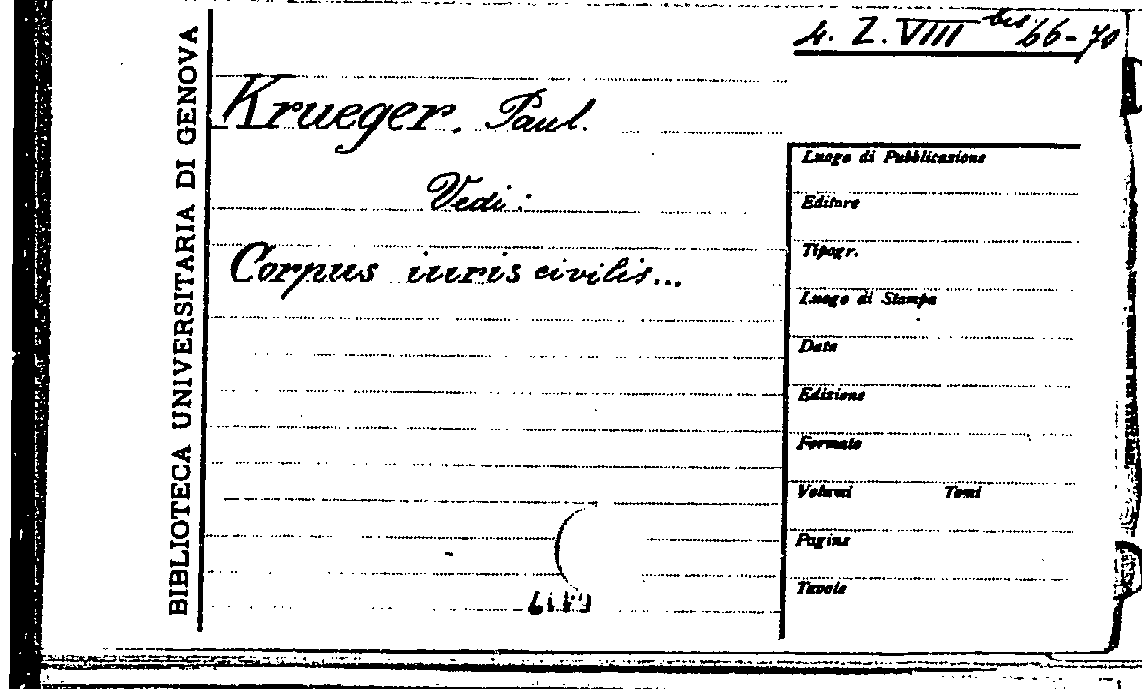 4. Z. VIII bis 66-70
BIBLIOTECA UNIVERSITARIA DI GENOVA
Krueger. Paul.
Vedi:
Corpus iuris civilis...
Luogo di Pubblicazione
Editore
Tipogr.
Luogo di Stampa
Data
Edizione
Formato
Volumi Tomi
Pagine
Tavole